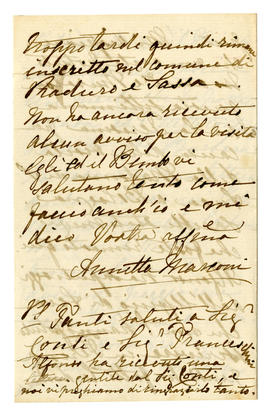 troppo tardi quindi rimane
inscritto nel comune di
Praduro e Sasso.
Non ha ancora ricevuto
alcun avviso per la visita
Egli ed il Bimbo vi
salutano tanto come
faccio anch'io e mi
dico Vostra affma
Annetta Marconi
PS Tanti saluti a Sigr
Conti e Sigr Francesco
Alfonso ha ricevuto una
gentile dal Sig Conti, e
noi vi preghiamo di ringraziarlo tanto.